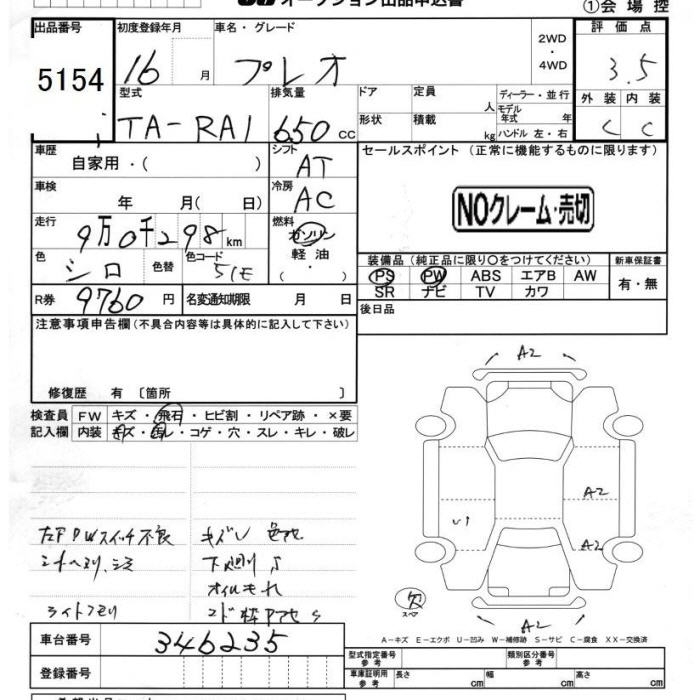 オークション出品申込書
①会場控
出品番号 5154
初度登録年月 16 月
車名・グレード プレオ
2WD・4WD
評価点 3.5
外装 C 内装 C
型式 TA-RA1
排気量 650 cc
ドア
形状
定員 人
積載 kg
ディーラー・並行
モデル年式 年
ハンドル 左・右
車歴 自家用・( )
シフト AT
セールスポイント (正常に機能するものに限ります)
車検 年 月( 日)
冷房 AC
NOクレーム・売切
走行 9万0千298km
燃料 ガソリン 軽油・
色 シロ 色替 色コード 51E
装備品 (純正品に限り○をつけてください)
新車保証書
PS PW ABS エアB AW
SR ナビ TV カワ
有・無
R券 9760円 名変通知期限 月 日
後日品
注意事項申告欄 (不具合内容等は具体的に記入して下さい)
修復歴 有 〔箇所 〕
検査員記入欄
FW キズ・飛石・ヒビ割・リペア跡・×要
内装 キズ・汚レ・コゲ・穴・スレ・キレ・破レ
左F PWスイッチ不良
キズU
下廻りS
オイルモレ
A2
A2
U1
A2
欠 スペア
A2
A-キズ E-エクボ U-凹み W-補修跡 S-サビ C-腐食 XX-交換済
車台番号 346235
登録番号
型式指定番号 参考
類別区分番号 参考
車庫証明用 参考 長さ cm 幅 cm 高さ cm